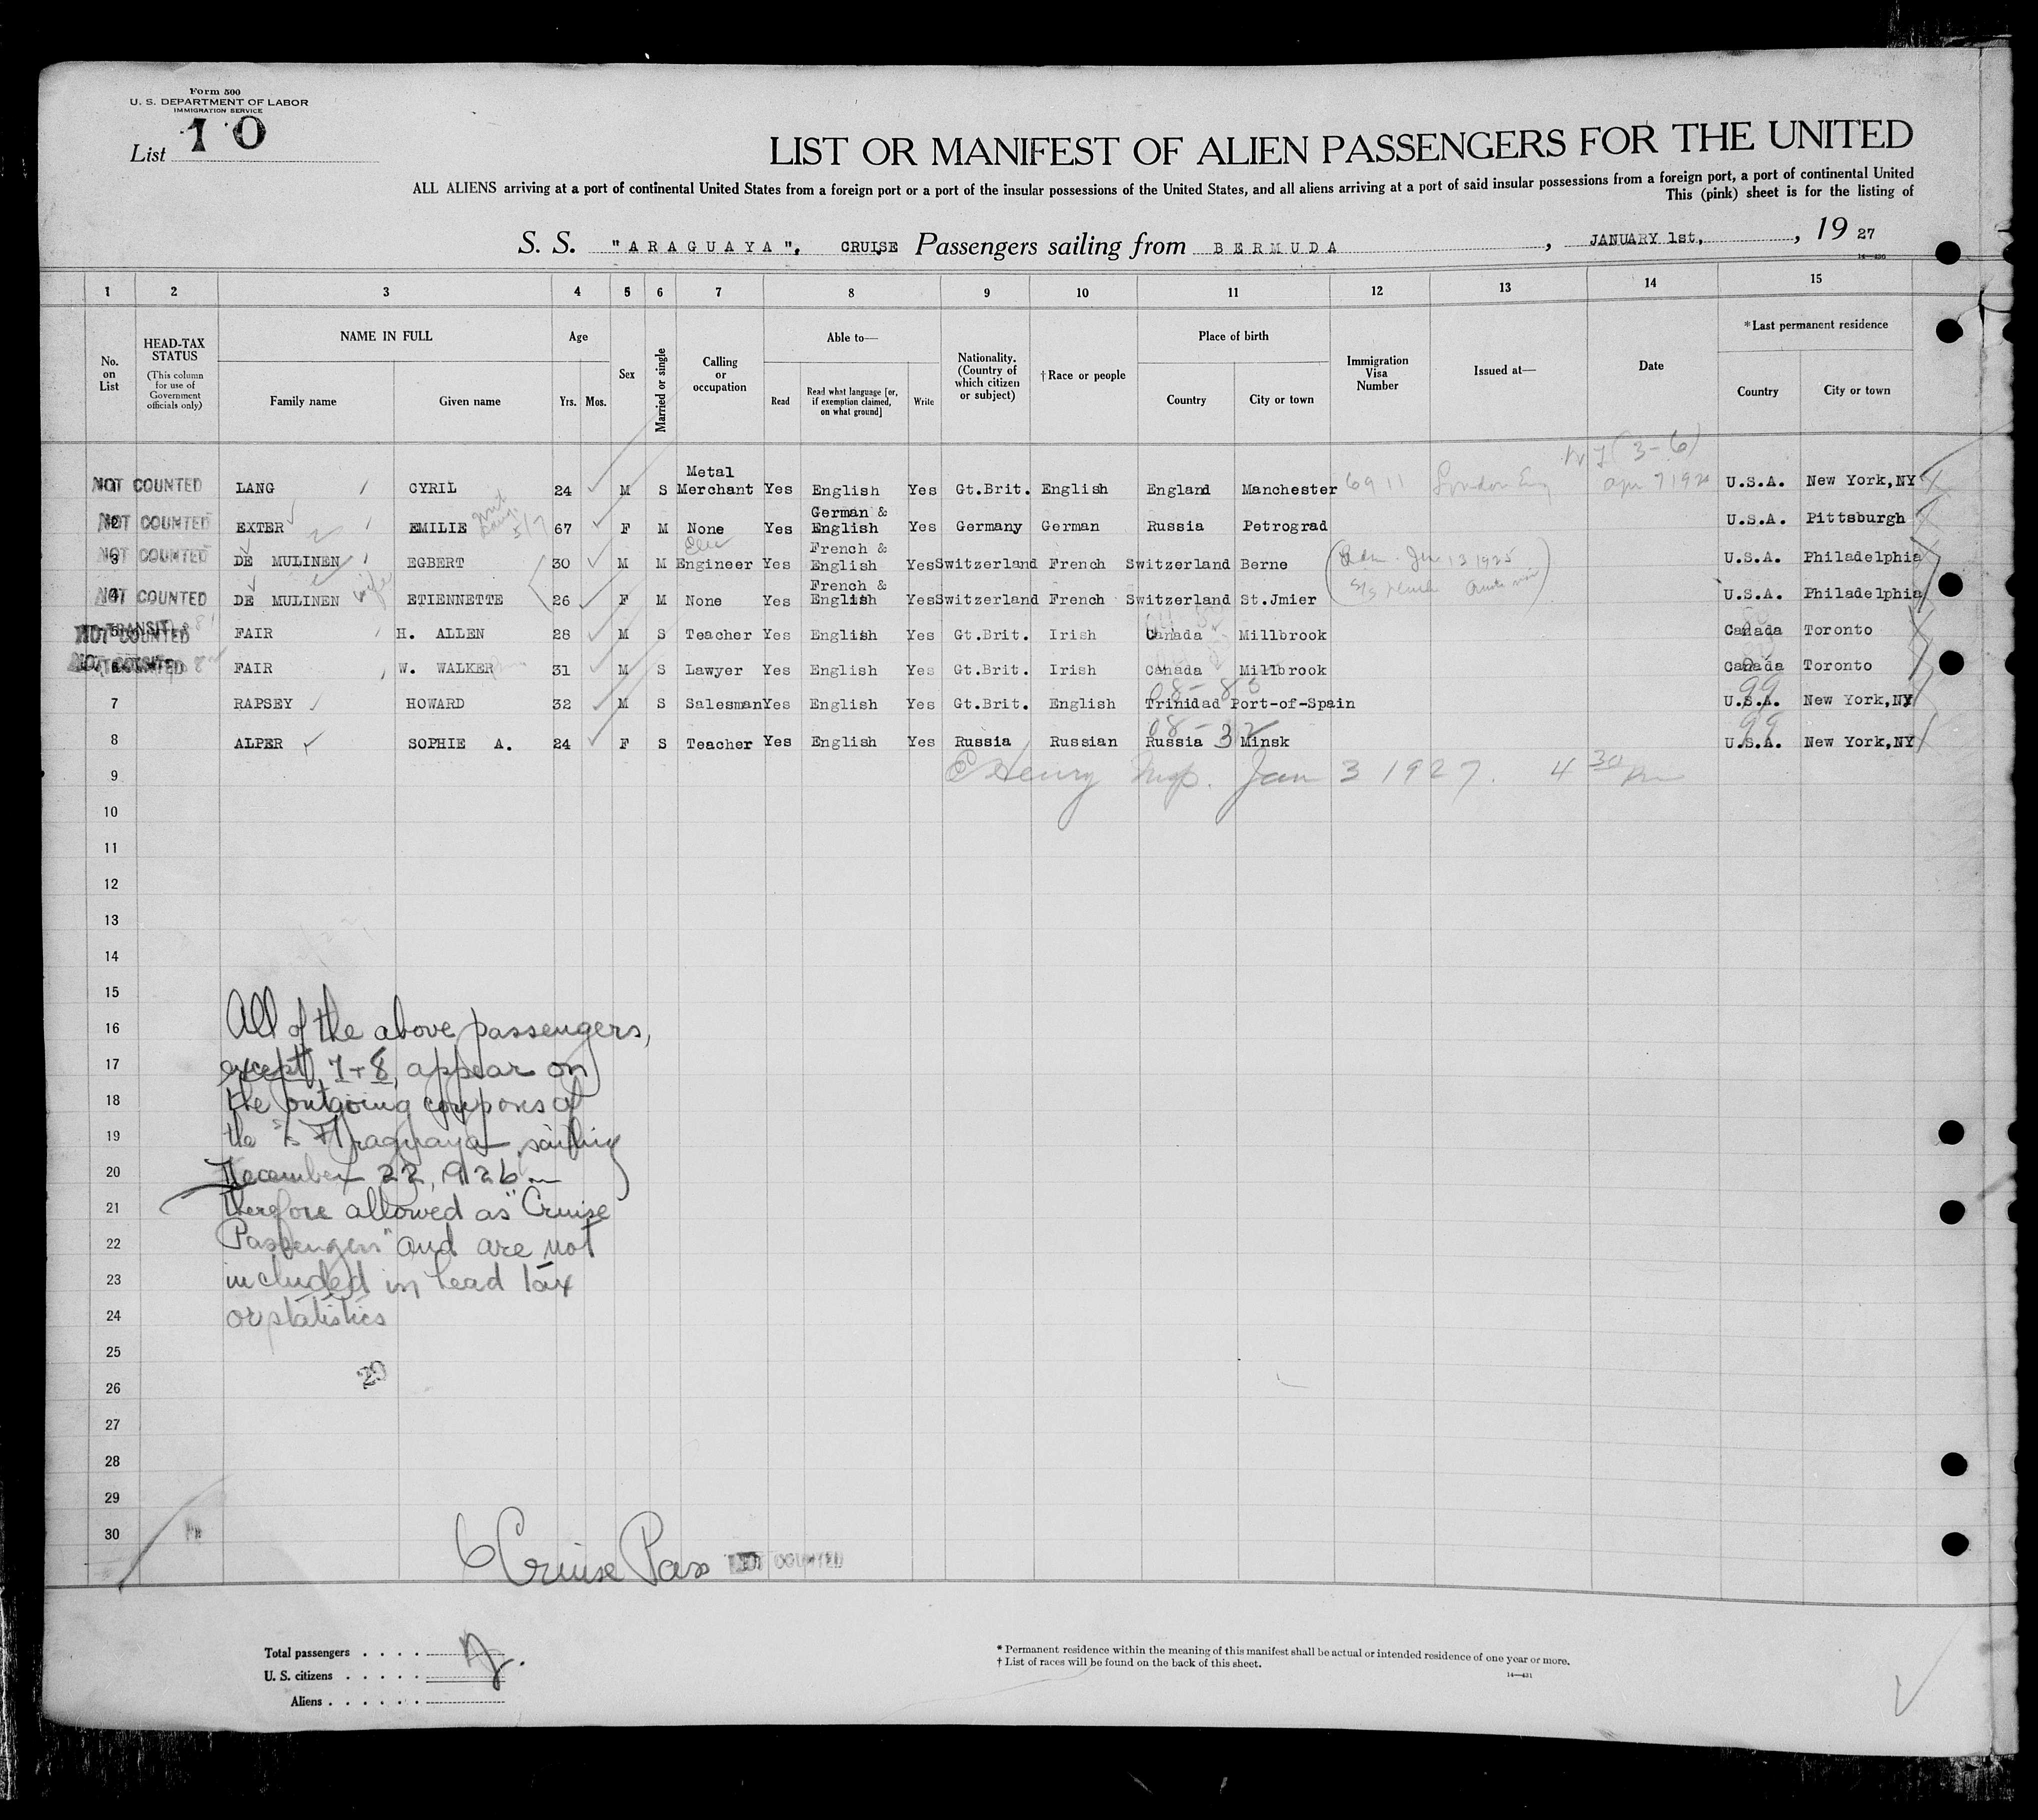 Form 500
U. S. DEPARTMENT OF LABOR
IMMIGRATION SERVICE
List 10
LIST OR MANIFEST OF ALIEN PASSENGERS FOR THE UNITED
ALL ALIENS arriving at a port of continental United States from a foreign port or a port of the insular possessions of the United States, and all aliens arriving at a port of said insular possessions from a foreign port, a port of continental United
This (pink) sheet is for the listing of
S. S. "ARAGUAYA", CRUISE Passengers sailing from BERMUDA, JANUARY 1st, , 19 27
14—430
1 2 3 4 5 6 7 8 9 10 11 12 13 14 15
No. on List
HEAD-TAX STATUS
(This column for use of Government officials only)
NAME IN FULL
Family name Given name
Age
Yrs. Mos.
Sex
Married or single
Calling or occupation
Able to—
Read
Read what language [or, if exemption claimed, on what ground]
Write
Nationality. (Country of which citizen or subject)
†Race or people
Place of birth
Country City or town
Immigration Visa Number
Issued at—
Date
*Last permanent residence
Country City or town
NY (3-6)
NOT COUNTED LANG CYRIL 24 M S Metal Merchant Yes English Yes Gt.Brit. English England Manchester 6911 London Eng U.S.A. New York,NY
NOT COUNTED EXTER EMILIE 67 F M None Yes German & English Yes Germany German Russia Petrograd U.S.A. Pittsburgh
3 NOT COUNTED DE MULINEN EGBERT 30 M M Elec Engineer Yes French & English Yes Switzerland French Switzerland Berne U.S.A. Philadelphia
4 NOT COUNTED DE MULINEN wife ETIENNETTE 26 F M None Yes French & English Yes Switzerland French Switzerland St.Jmier U.S.A. Philadelphia
TRANSIT NOT COUNTED FAIR H. ALLEN 28 M S Teacher Yes English Yes Gt.Brit. Irish Canada Millbrook Canada Toronto
NOT COUNTED FAIR W. WALKER 31 M S Lawyer Yes English Yes Gt.Brit. Irish Canada Millbrook Canada Toronto
08-83 99
7 RAPSEY HOWARD 32 M S Salesman Yes English Yes Gt.Brit. English Trinidad Port-of-Spain U.S.A. New York,NY
08-32 99
8 ALPER SOPHIE A. 24 F S Teacher Yes English Yes Russia Russian Russia Minsk U.S.A. New York,NY
9 Henry Insp. Jan 3 1927. 4 30 pm
10
11
12
13
14
15
16 All of the above passengers,
17 except 7+8, appear on
18 the outgoing coupons of
19 the SS Araguaya, sailing
20 December 22, 1926
21 therefore allowed as "Cruise
22 Passengers" and are not
23 included in head tax
24 or statistics
25
26 29
27
28
29
30
6 Cruise Pass NOT COUNTED
Total passengers
U. S. citizens
Aliens
* Permanent residence within the meaning of this manifest shall be actual or intended residence of one year or more.
† List of races will be found on the back of this sheet.
14—431